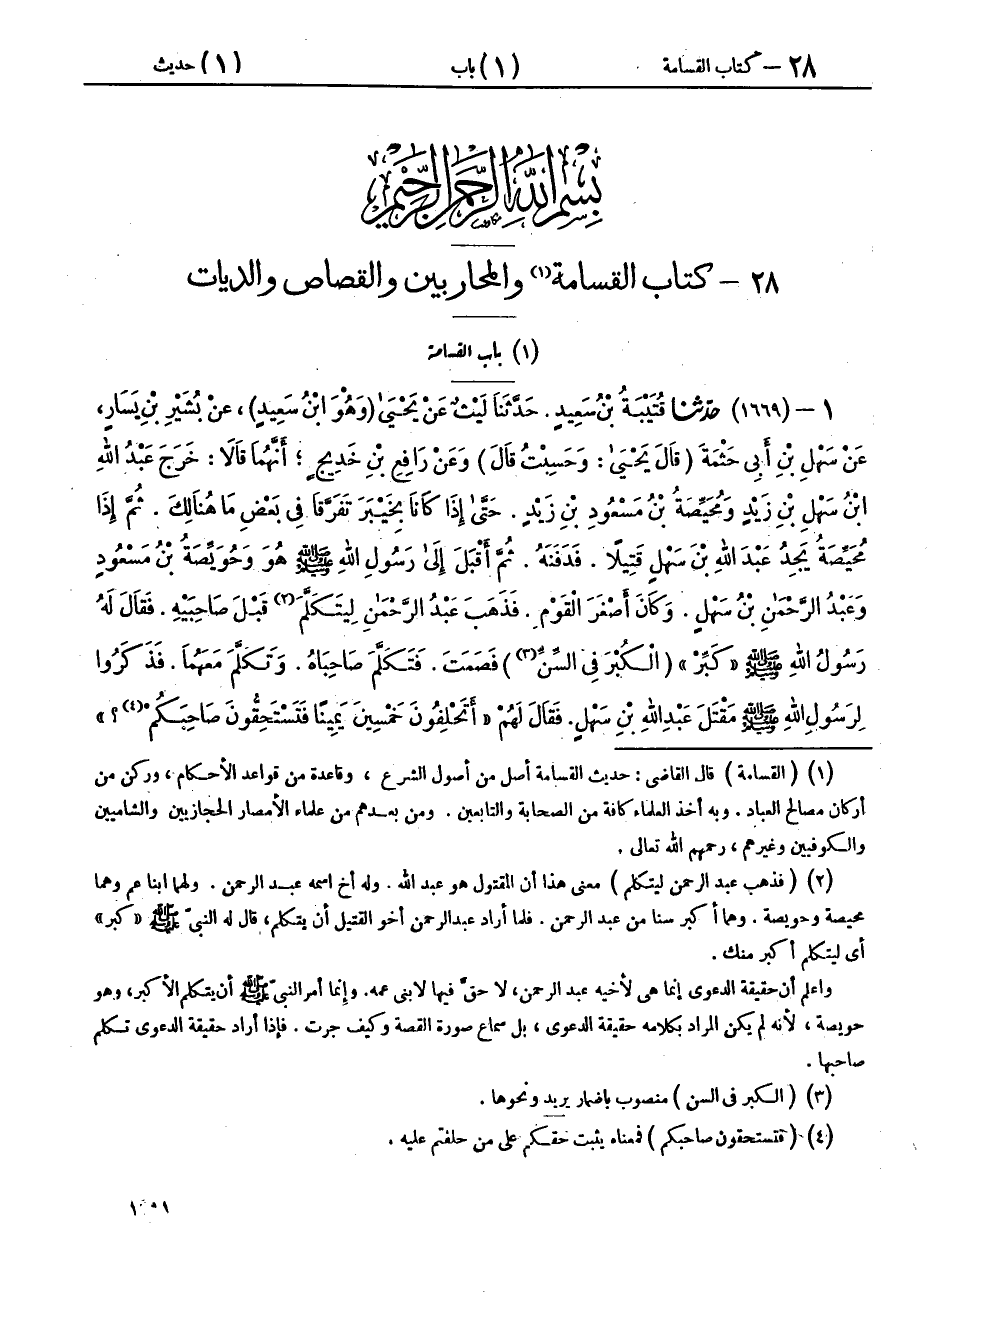 ٢٨ – كتاب القسامة (١) باب (١) حديث
بسم الله الرحمن الرحيم
٢٨ – كتاب القسامة(١) والمحاربين والقصاص والديات
(١) باب القسامة
١ – (١٦٦٩) حَدَّثَنَا قُتَيْبَةُ بْنُ سَعِيدٍ . حَدَّثَنَا لَيْثٌ عَنْ يَحْيَىٰ (وَهُوَ ابْنُ سَعِيدٍ) ، عَنْ بُشَيْرِ بْنِ يَسَارٍ،
عَنْ سَهْلِ بْنِ أَبِى حَثْمَةَ ( قَالَ يَحْيَىٰ : وَحَسِبْتُ قَالَ ) وَعَنْ رَافِعِ بْنِ خَدِيجٍ ؛ أَنَّهُمَا قَالَا : خَرَجَ عَبْدُ اللهِ
ابْنُ سَهْلِ بْنِ زَيْدٍ وَمُحَيِّصَةُ بْنُ مَسْعُودِ بْنِ زَيْدٍ . حَتَّىٰ إِذَا كَانَا بِخَيْبَرَ تَفَرَّقَا فِى بَعْضِ مَا هُنَالِكَ . ثُمَّ إِذَا
مُحَيِّصَةُ يَجِدُ عَبْدَ اللهِ بْنَ سَهْلٍ قَتِيلًا . فَدَفَنَهُ . ثُمَّ أَقْبَلَ إِلَىٰ رَسُولِ اللهِ ﷺ هُوَ وَحُوَيِّصَةُ بْنُ مَسْعُودٍ
وَعَبْدُ الرَّحْمَٰنِ بْنُ سَهْلٍ . وَكَانَ أَصْغَرَ الْقَوْمِ . فَذَهَبَ عَبْدُ الرَّحْمَٰنِ لِيَتَكَلَّمَ(٢) قَبْلَ صَاحِبَيْهِ . فَقَالَ لَهُ
رَسُولُ اللهِ ﷺ « كَبِّرْ » ( الْكُبْرَ فِى السِّنِّ(٣) ) فَصَمَتَ . فَتَكَلَّمَ صَاحِبَاهُ . وَتَكَلَّمَ مَعَهُمَا . فَذَكَرُوا
لِرَسُولِ اللهِ ﷺ مَقْتَلَ عَبْدِ اللهِ بْنِ سَهْلٍ. فَقَالَ لَهُمْ « أَتَحْلِفُونَ خَمْسِينَ يَمِينًا فَتَسْتَحِقُّونَ صَاحِبَكُمْ(٤) ؟ »
(١) ( القسامة ) قال القاضى : حديث القسامة أصل من أصول الشرع ، وقاعدة من قواعد الأحكام ، وركن من
أركان مصالح العباد . وبه أخذ العلماء كافة من الصحابة والتابعين . ومن بعدهم من علماء الأمصار الحجازيين والشاميين
والكوفيين وغيرهم ، رحمهم الله تعالى .
(٢) ( فذهب عبد الرحمن ليتكلم ) معنى هذا أن المقتول هو عبد الله . وله أخ اسمه عبد الرحمن . ولهما ابنا عم وهما
محيصة وحويصة . وهما أكبر سنا من عبد الرحمن . فلما أراد عبدالرحمن أخو القتيل أن يتكلم، قال له النبىّ ﷺ « كبر »
أى ليتكلم أكبر منك .
واعلم أن حقيقة الدعوى إنما هى لأخيه عبد الرحمن، لا حقّ فيها لابنى عمه. وإنما أمر النبىّ ﷺ أن يتكلم الأكبر، وهو
حويصة ، لأنه لم يكن المراد بكلامه حقيقة الدعوى ، بل سماع صورة القصة وكيف جرت . فإذا أراد حقيقة الدعوى تكلم
صاحبها .
(٣) ( الكبر فى السن ) منصوب بإضمار يريد ونحوها .
(٤) ( فتستحقون صاحبكم ) فمعناه يثبت حقكم على من حلفتم عليه .
١٢٩١